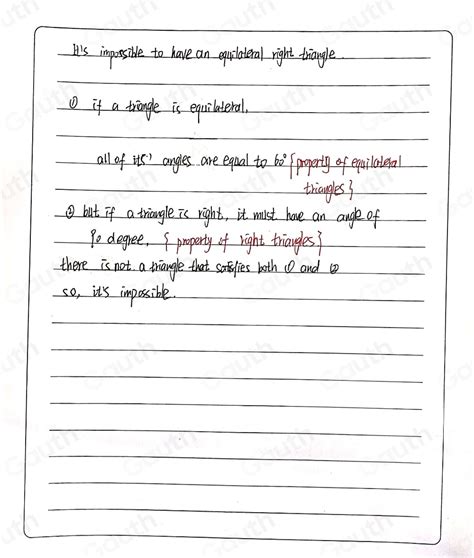 It's impossible to have an equilateral right triangle.
① if a triangle is equilateral,
all of its' angles are equal to 60° {property of equilateral
triangles}
② but if a triangle is right, it must have an angle of
90 degree. {property of right triangles}
there is not a triangle that satisfies both ① and ②
so, it's impossible.